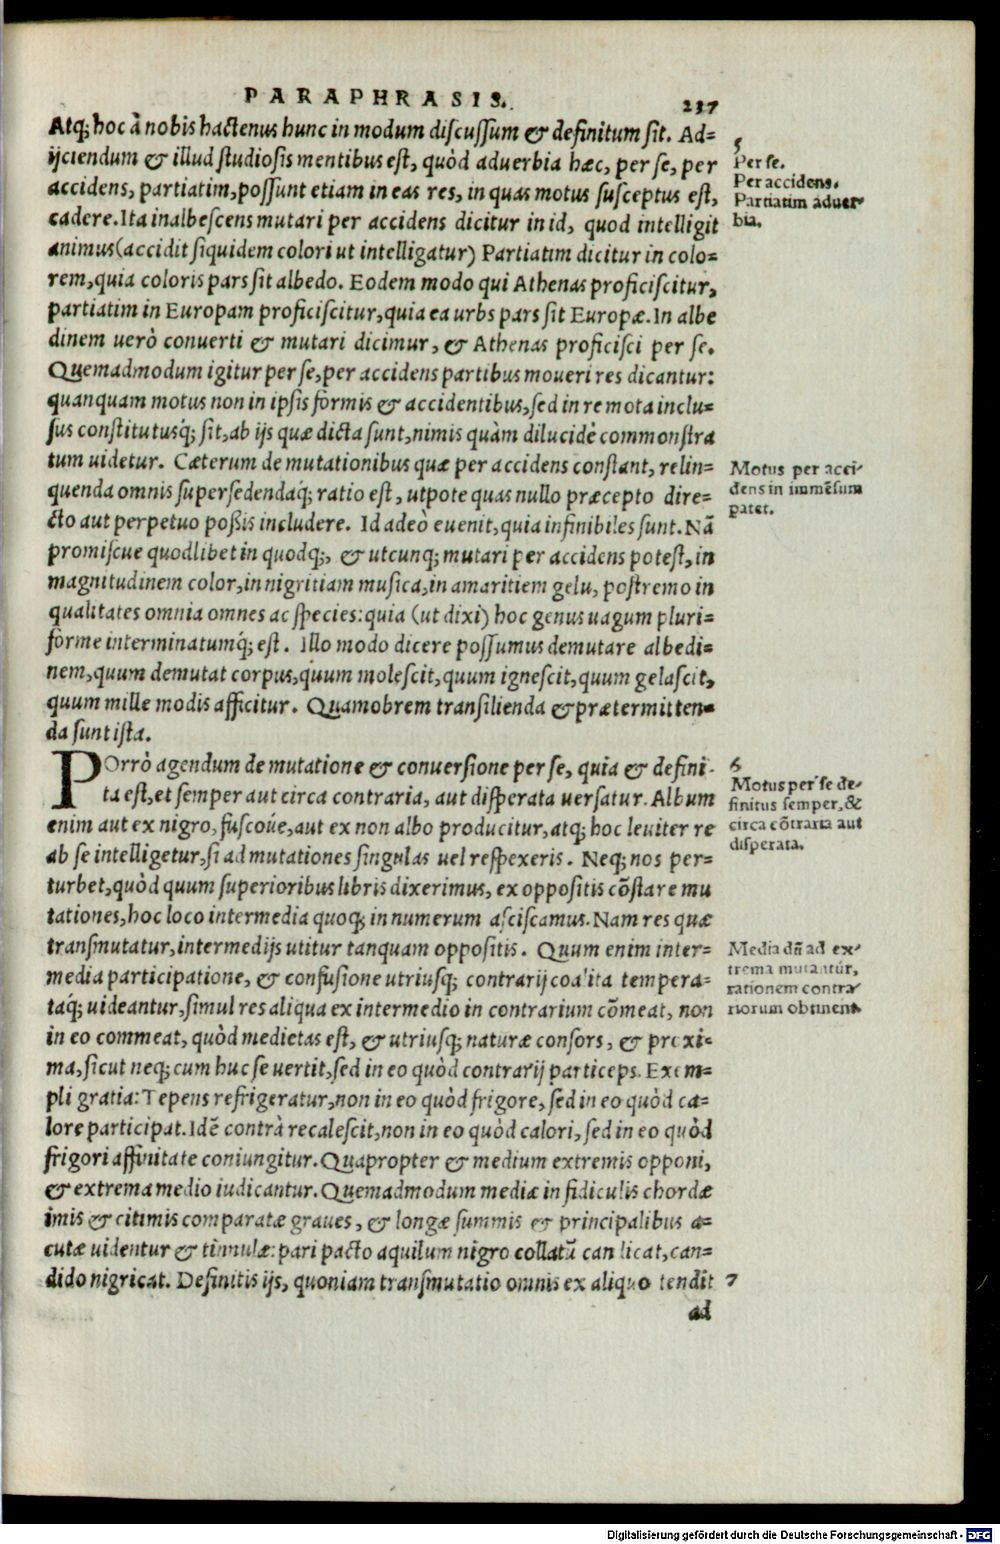 PARAPHRASIS. 237
Atq; hoc à nobis hactenus hunc in modum discussum & definitum sit. Ad=
ijciendum & illud studiosis mentibus est, quòd aduerbia hæc, per se, per
accidens, partiatim, possunt etiam in eas res, in quas motus susceptus est,
cadere. Ita inalbescens mutari per accidens dicitur in id, quod intelligit
animus (accidit siquidem colori ut intelligatur) Partiatim dicitur in colo=
rem, quia coloris pars sit albedo. Eodem modo qui Athenas proficiscitur,
partiatim in Europam proficiscitur, quia ea urbs pars sit Europæ. In albe
dinem uerò conuerti & mutari dicimur, & Athenas proficisci per se.
Quemadmodum igitur per se, per accidens partibus moueri res dicantur:
quanquam motus non in ipsis formis & accidentibus, sed in re mota inclu=
sus constitutusq́; sit, ab ijs quæ dicta sunt, nimis quàm dilucidè commonstra
tum uidetur. Cæterum de mutationibus quæ per accidens constant, relin=
quenda omnis supersedendaq́; ratio est, utpote quas nullo præcepto dire=
cto aut perpetuo poßis includere. Id adeò euenit, quia infinibiles sunt. Nā
promiscue quodlibet in quodq;, & utcunq; mutari per accidens potest, in
magnitudinem color, in nigritiam musica, in amaritiem gelu, postremo in
qualitates omnia omnes ac species: quia (ut dixi) hoc genus uagum pluri=
forme interminatumq́; est. Illo modo dicere possumus demutare albedi=
nem, quum demutat corpus, quum molescit, quum ignescit, quum gelascit,
quum mille modis afficitur. Quamobrem transilienda & prætermitten=
da sunt ista.
POrrò agendum de mutatione & conuersione per se, quia & defini-
ta est, et semper aut circa contraria, aut disperata uersatur. Album
enim aut ex nigro, fuscoúe, aut ex non albo producitur, atq; hoc leuiter re
ab se intelligetur, si ad mutationes singulas uel respexeris. Neq; nos per=
turbet, quòd quum superioribus libris dixerimus, ex oppositis cōstare mu
tationes, hoc loco intermedia quoq; in numerum asciscamus. Nam res quæ
transmutatur, intermedijs utitur tanquam oppositis. Quum enim inter=
media participatione, & confusione utriusq; contrarij coalita tempera=
taq́; uideantur, simul res aliqua ex intermedio in contrarium cōmeat, non
in eo commeat, quòd medietas est, & utriusq; naturæ consors, & proxi=
ma, sicut neq; cum huc se uertit, sed in eo quòd contrarij particeps. Exem=
pli gratia: Tepens refrigeratur, non in eo quòd frigore, sed in eo quòd ca=
lore participat. Idē contrà recalescit, non in eo quòd calori, sed in eo quòd
frigori affinitate coniungitur. Quapropter & medium extremis opponi,
& extrema medio iudicantur. Quemadmodum mediæ in fidiculis chordæ
imis & citimis comparatæ graues, & longæ summis & principalibus a=
cutæ uidentur & tinnulæ: pari pacto aquilum nigro collatū candicat, can=
dido nigricat. Definitis ijs, quoniam transmutatio omnis ex aliquo tendit
ad
5
Per se.
Per accidens.
Partiatim aduer-
bia.
Motus per acci-
dens in immēsum
patet.
6
Motus per se de-
finitus semper, &
circa cōtraria aut
disperata.
Media dū ad ex-
trema mutantur,
rationem contra-
riorum obtinent.
7
Digitalisierung gefördert durch die Deutsche Forschungsgemeinschaft - DFG